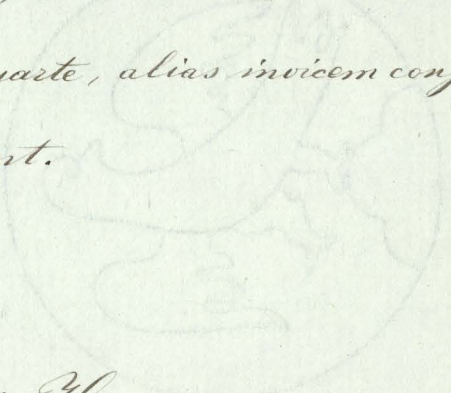 uarte, alias invicem conf
nt.